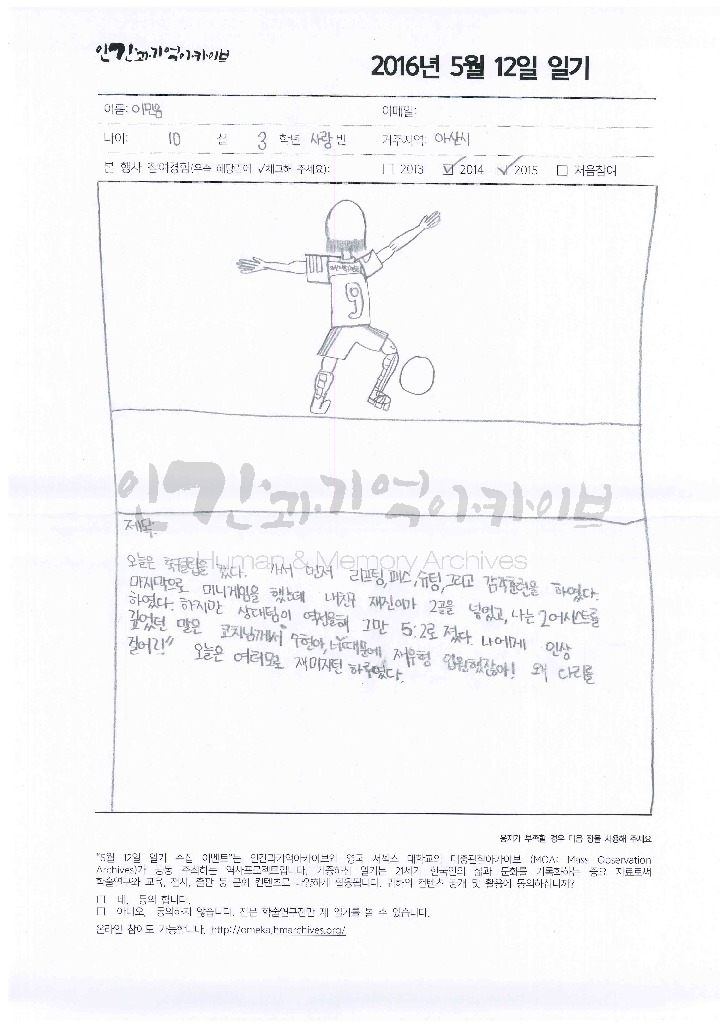 인간과기억아카이브
2016년 5월 12일 일기
이름: 이민음
이메일:
나이: 10 살 3 학년 사랑 반
거주지역: 아산시
본 행사 참여경험(우측 해당란에 √체크해 주세요):
□ 2013 ☑ 2014 ✓ 2015 □ 처음참여
9
인간·과·기억아·카·이브
Human & Memory Archives
제목:
오늘은 축구클럽을 갔다. 가서 먼저 리프팅, 패스, 슈팅, 그리고 감각훈련을 하였다.
마지막으로 미니게임을 했는데 내친구 재진이가 2골을 넣었고, 나는 2어시스트를
하였다. 하지만 상대팀이 역전을해 그만 5:2로 졌다. 나에게 인상
깊었던 말은 코치님께서 "수현아, 너때문에 재유형 입원했잖아! 왜 다리를
걸어!" 오늘은 여러모로 재미지던 하루였다.
용지가 부족할 경우 다음 장을 사용해 주세요
"5월 12일 일기 수집 이벤트"는 인간과기억아카이브와 영국 서섹스 대학교의 대중관찰아카이브 (MOA: Mass Observation
Archives)가 공동 주최하는 역사프로젝트입니다. 기증하신 일기는 21세기 한국인의 삶과 문화를 기록화하는 중요 자료로써
학술연구와 교육, 전시, 출판 등 문화 컨텐츠로 다양하게 활용됩니다. 귀하의 컨텐츠 공개 및 활용에 동의하십니까?
□ 네, 동의 합니다.
□ 아니요, 동의하지 않습니다. 전문 학술연구진만 제 일기를 볼 수 있습니다.
온라인 참여도 가능합니다. http://omeka.hmarchives.org/